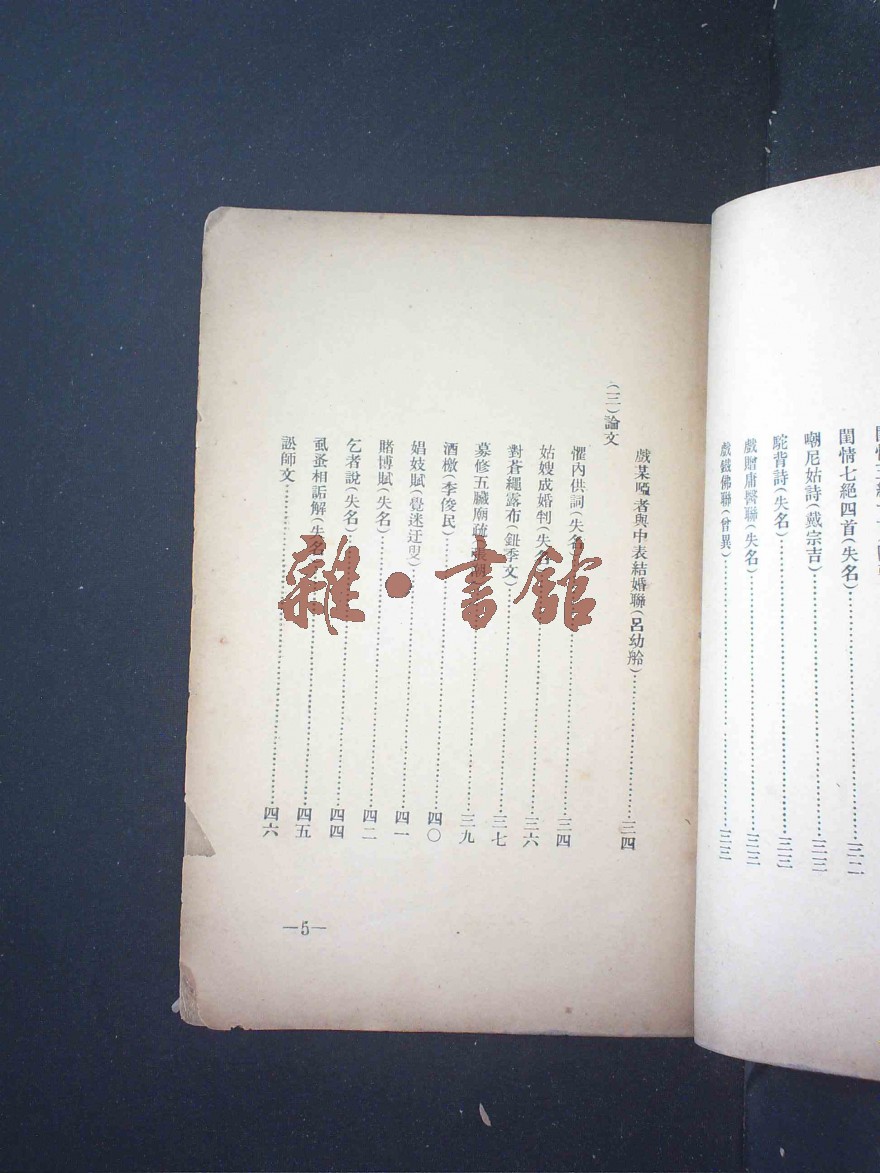 閨情七絕四首(失名)⋯⋯三二
嘲尼姑詩(戴宗吉)⋯⋯三三
駝背詩(失名)⋯⋯三三
戲贈庸醫聯(失名)⋯⋯三三
戲鐵佛聯(曾異)⋯⋯三三
戲某啞者與中表結婚聯(呂幼舲)⋯⋯三四
(三)論文
懼內供詞(失名⋯⋯三四
姑嫂成婚判(失名⋯⋯三六
對蒼繩露布(鈕季文)⋯⋯三七
募修五臟廟疏⋯⋯三九
酒檄(李俊民)⋯⋯四〇
娼妓賦(覺迷迂叟)⋯⋯四一
賭博賦(失名)⋯⋯四二
乞者說(失名)⋯⋯四四
虱蚤相詬解(失名⋯⋯四五
訟師文⋯⋯四六
—5—
雜·書館